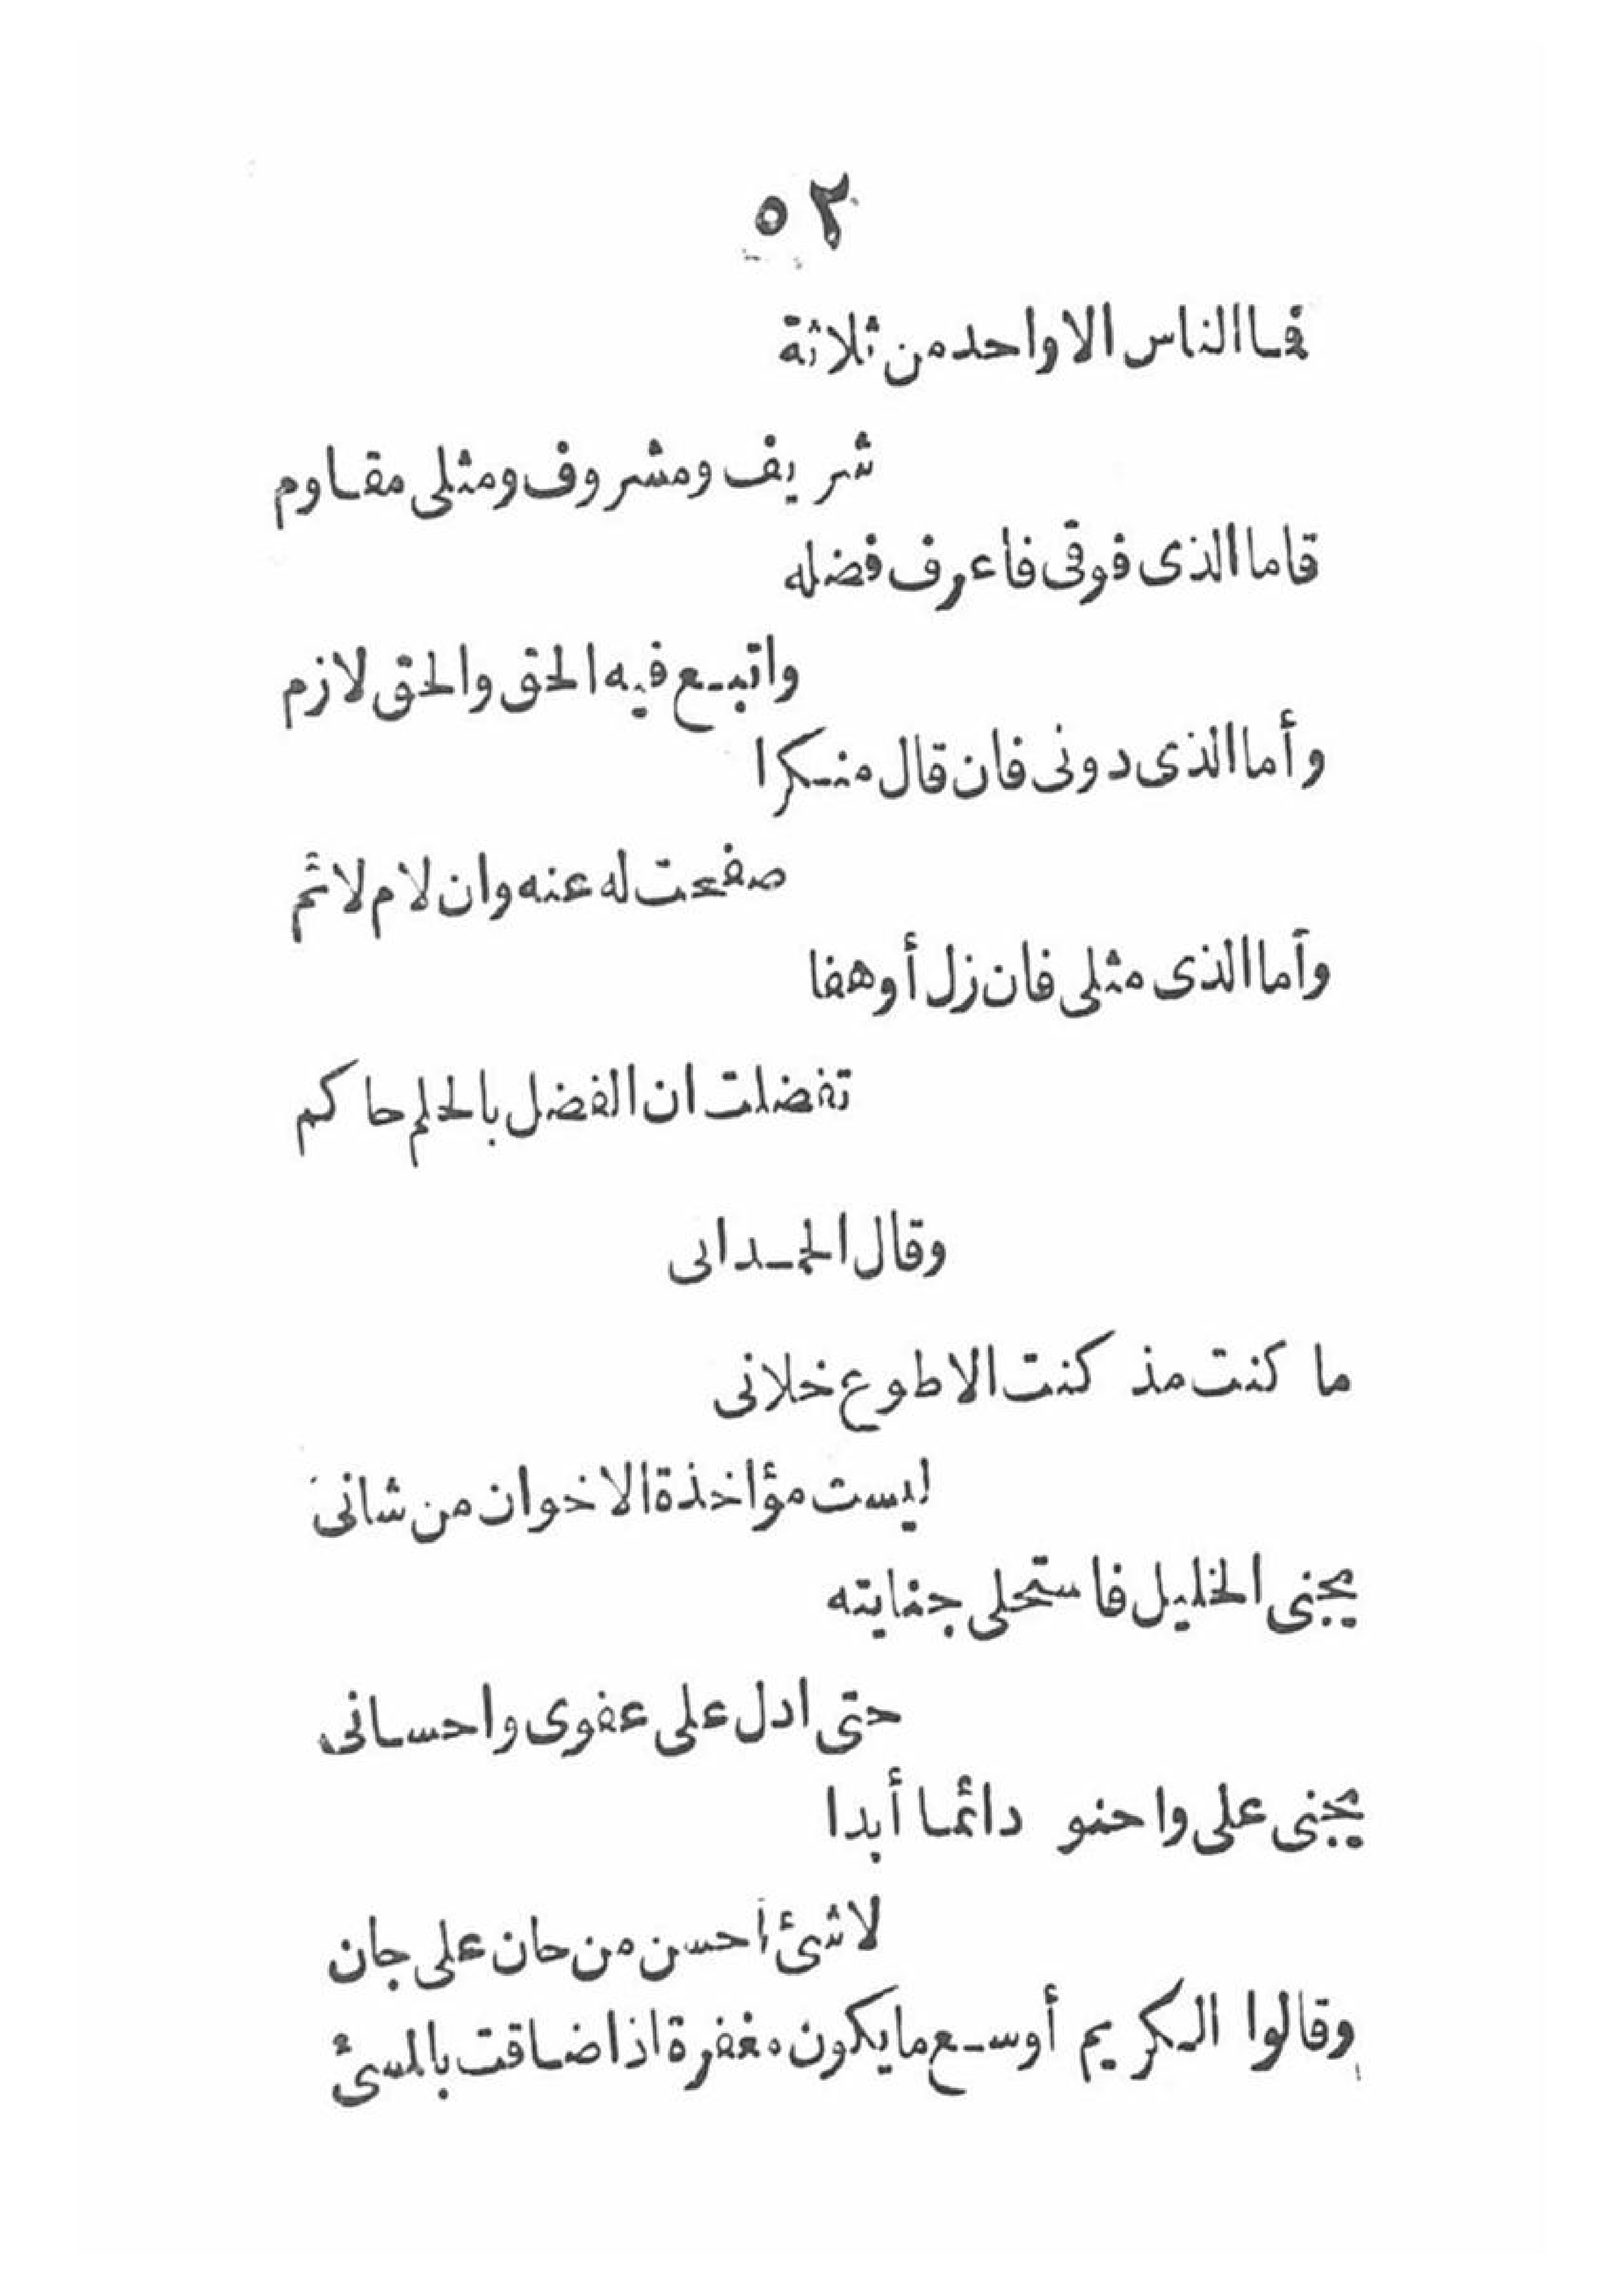 ٥٢
فما الناس الا واحد من ثلاثة
شريف ومشروف ومثلى مقاوم
فاما الذى فوقى فاعرف فضله
واتبع فيه الحق والحق لازم
وأما الذى دونى فان قال منكرا
صفحت له عنه وان لام لائم
وأما الذى مثلى فان زل أوهفا
تفضلت ان الفضل بالحلم حاكم
وقال الحمدانى
ما كنت مذ كنت الا طوع خلانى
ليست مؤاخذة الاخوان من شانى
يجنى الخليل فاستحلى جنايته
حتى ادل على عفوى واحسانى
يجنى على واحنو دائما أبدا
لاشئ أحسن من حان على جان
وقالوا الكريم أوسع مايكون مغفرة اذا ضاقت بالمسئ